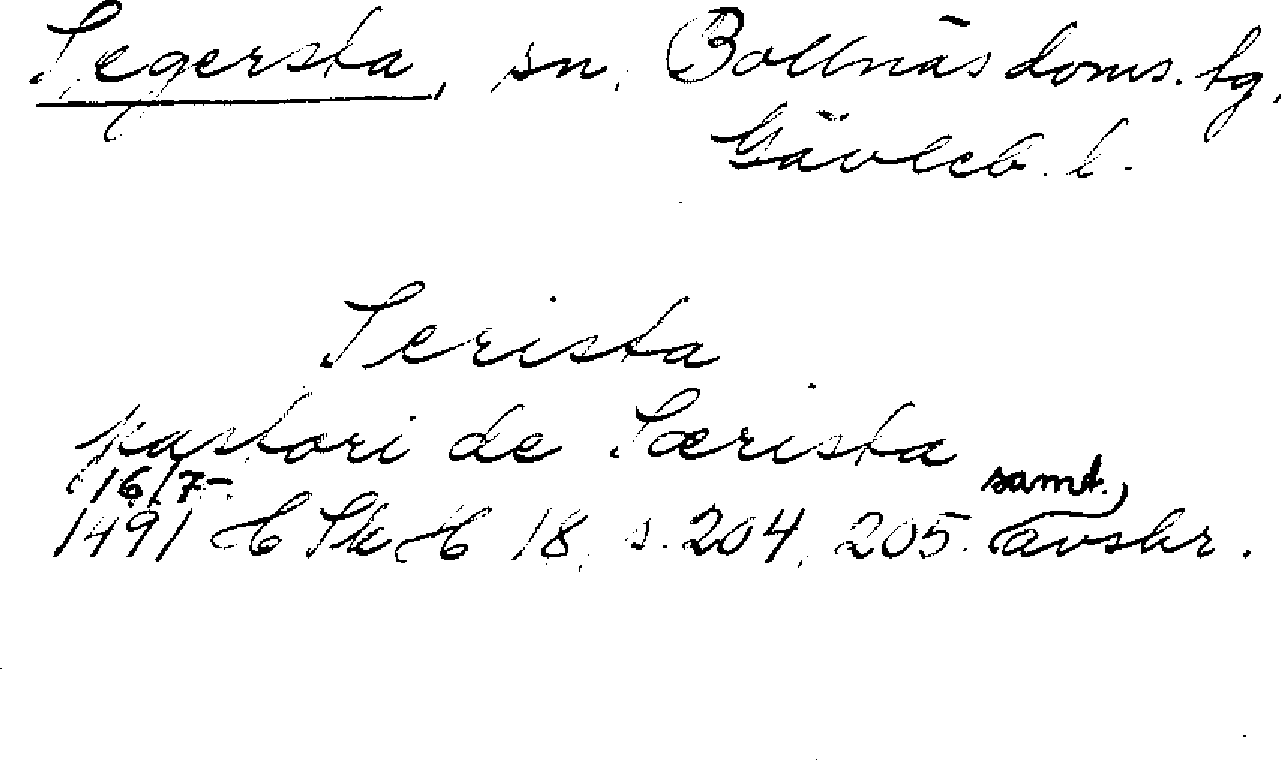 Segersta, sn. Bollnäs doms. tg,
Gävleb. l.
Serista
pastori de Særista
16/7
samt.,
1491 HSkH 18, s. 204, 205. avskr.